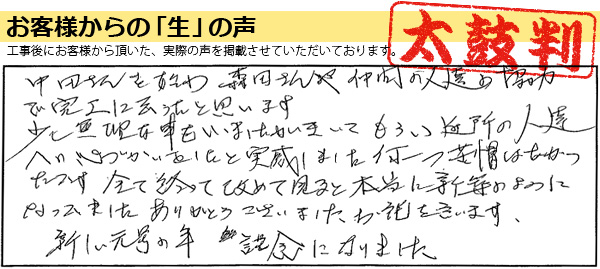 お客様からの「生」の声
工事後にお客様から頂いた、実際の声を掲載させていただいております。
太鼓判
中田さんを始め 森田さんや仲間の人達の協力
で完工に至ったと思います
少し無理な事もいいましたがきいてもらい近所の人達
への心づかいをしたと実感しました 何一つ苦情はなかっ
たです 全て終って改めて見ると本当に新築のように
なってました ありがとうございました お礼を言います、
新しい元号の年 記念になりました